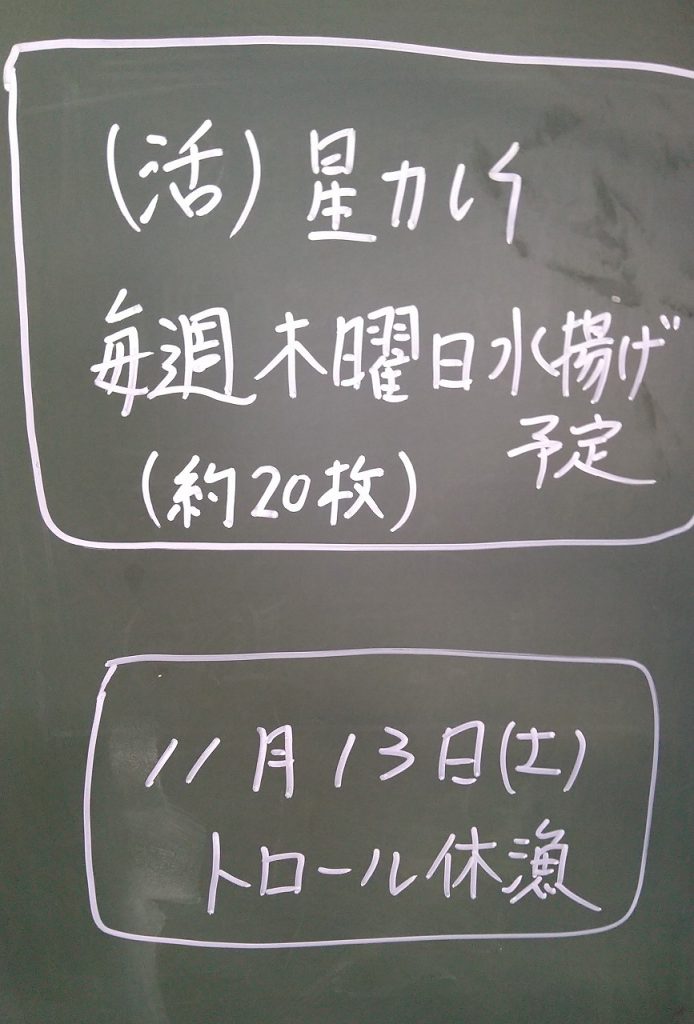 (活)星カレイ
毎週木曜日水揚げ
予定
(約20枚)
11月13日(土)
トロール休漁